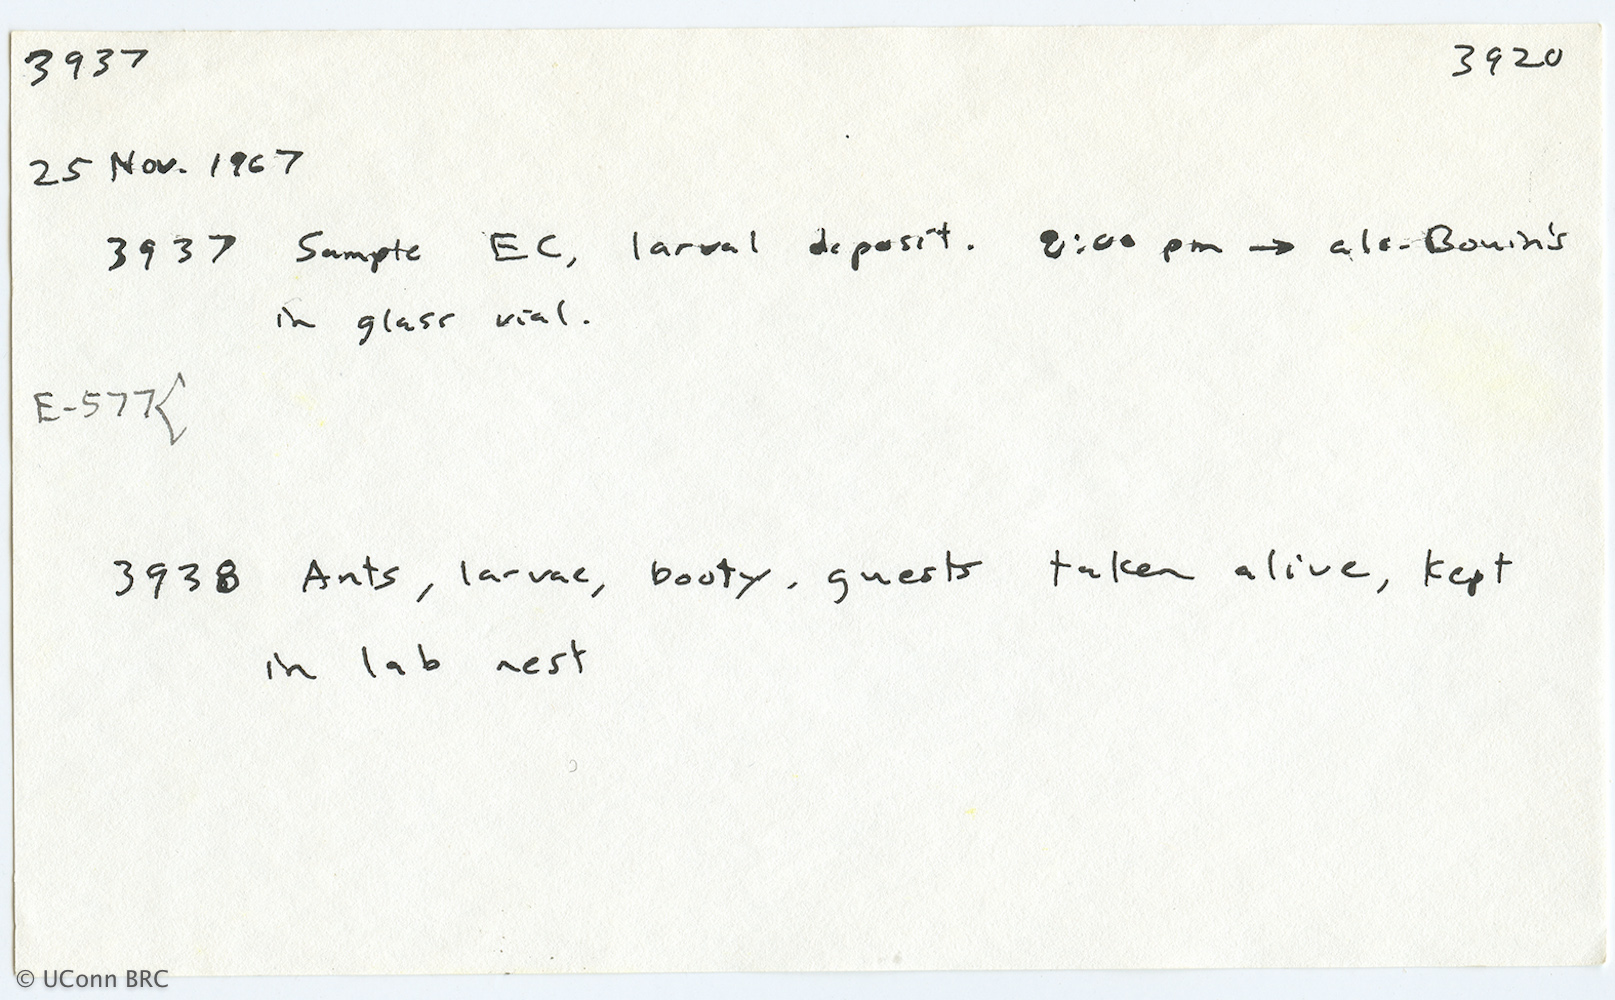 3937 3920
25 Nov. 1967
3937 Sample EC, larval deposit. 2:00 pm → alc. Bouin's
in glass vial.
E-577{
3938 Ants, larvae, booty, guests taken alive, kept
in lab nest
© UConn BRC